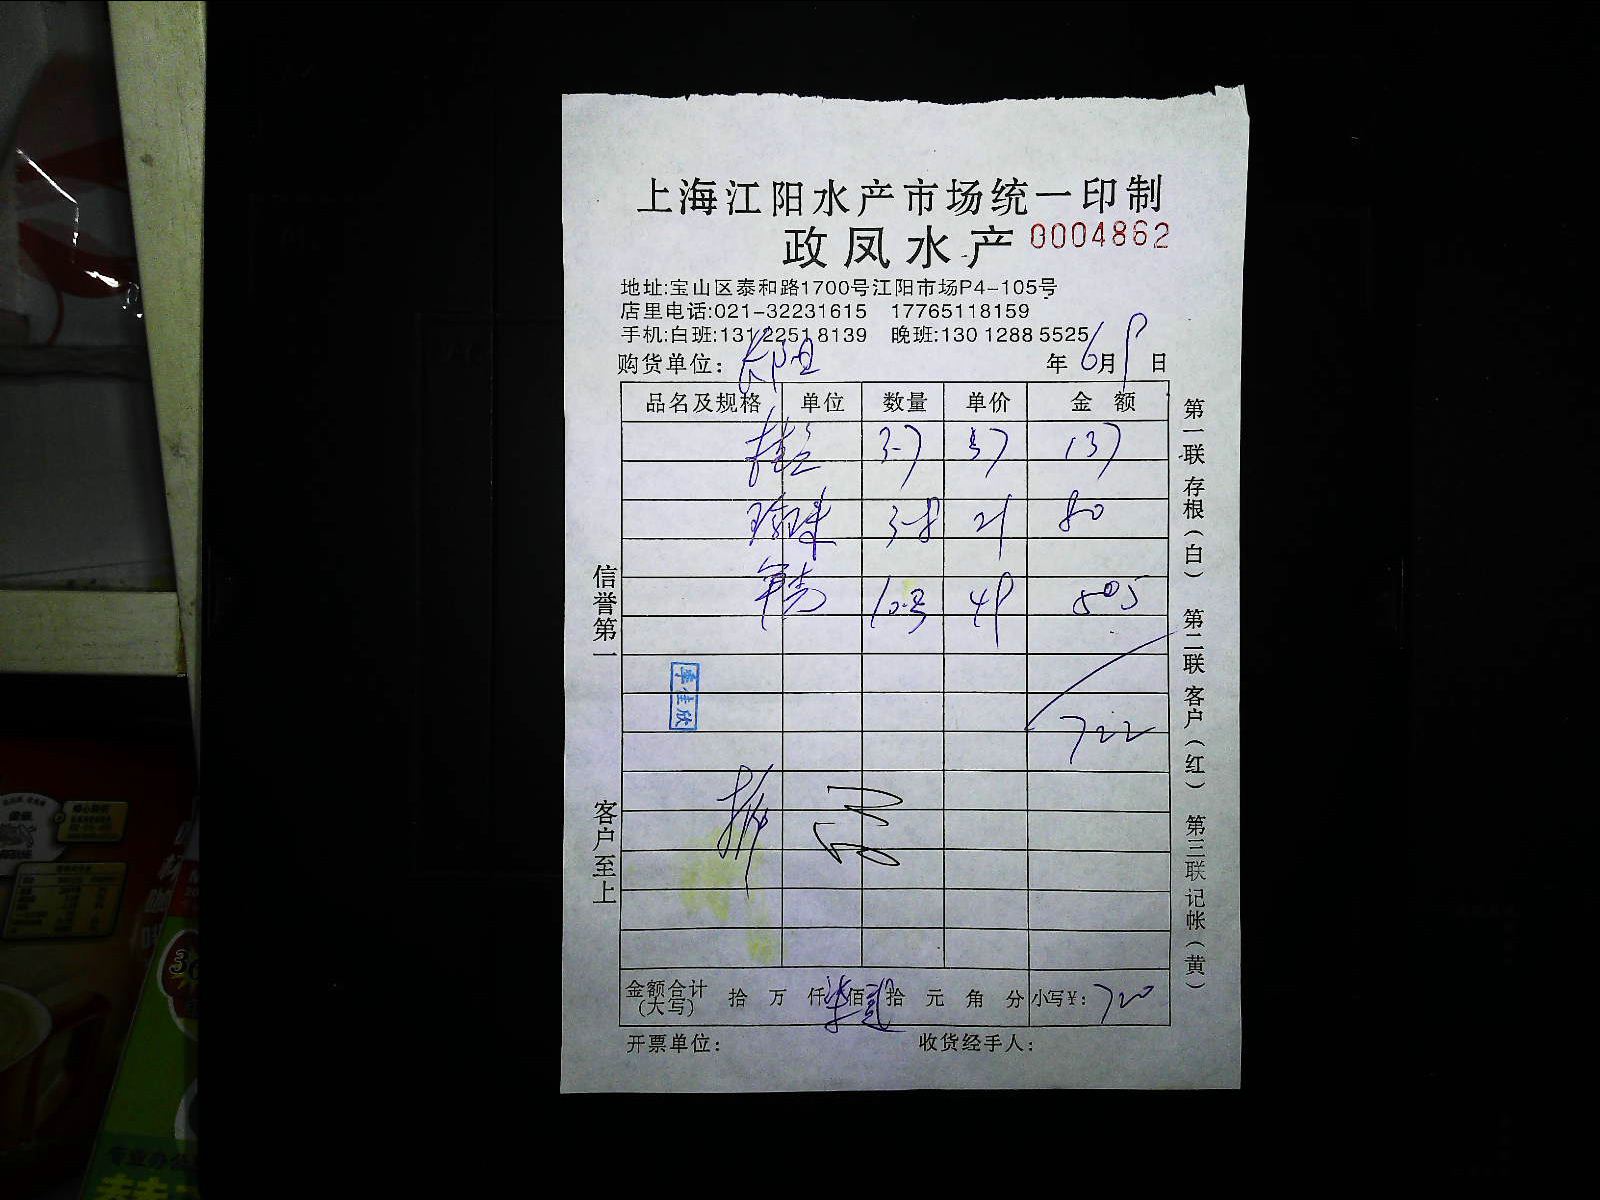 上海江阳水产市场统一印制
政凤水产 0004862
地址:宝山区泰和路1700号江阳市场P4-105号
店里电话:021-32231615 17765118159
手机:白班:131 2251 8139 晚班:130 1288 5525
购货单位: 年 6月 日
品名及规格 单位 数量 单价 金额
3-7 37 137
珍珠 3-8 21 80
505
722
李佳欣
金额合计(大写) 拾 万 仟 柒 佰 贰 拾 元 角 分 小写¥: 720
开票单位: 收货经手人:
信誉第一 客户至上
第一联 存根(白) 第二联 客户(红) 第三联 记帐(黄)